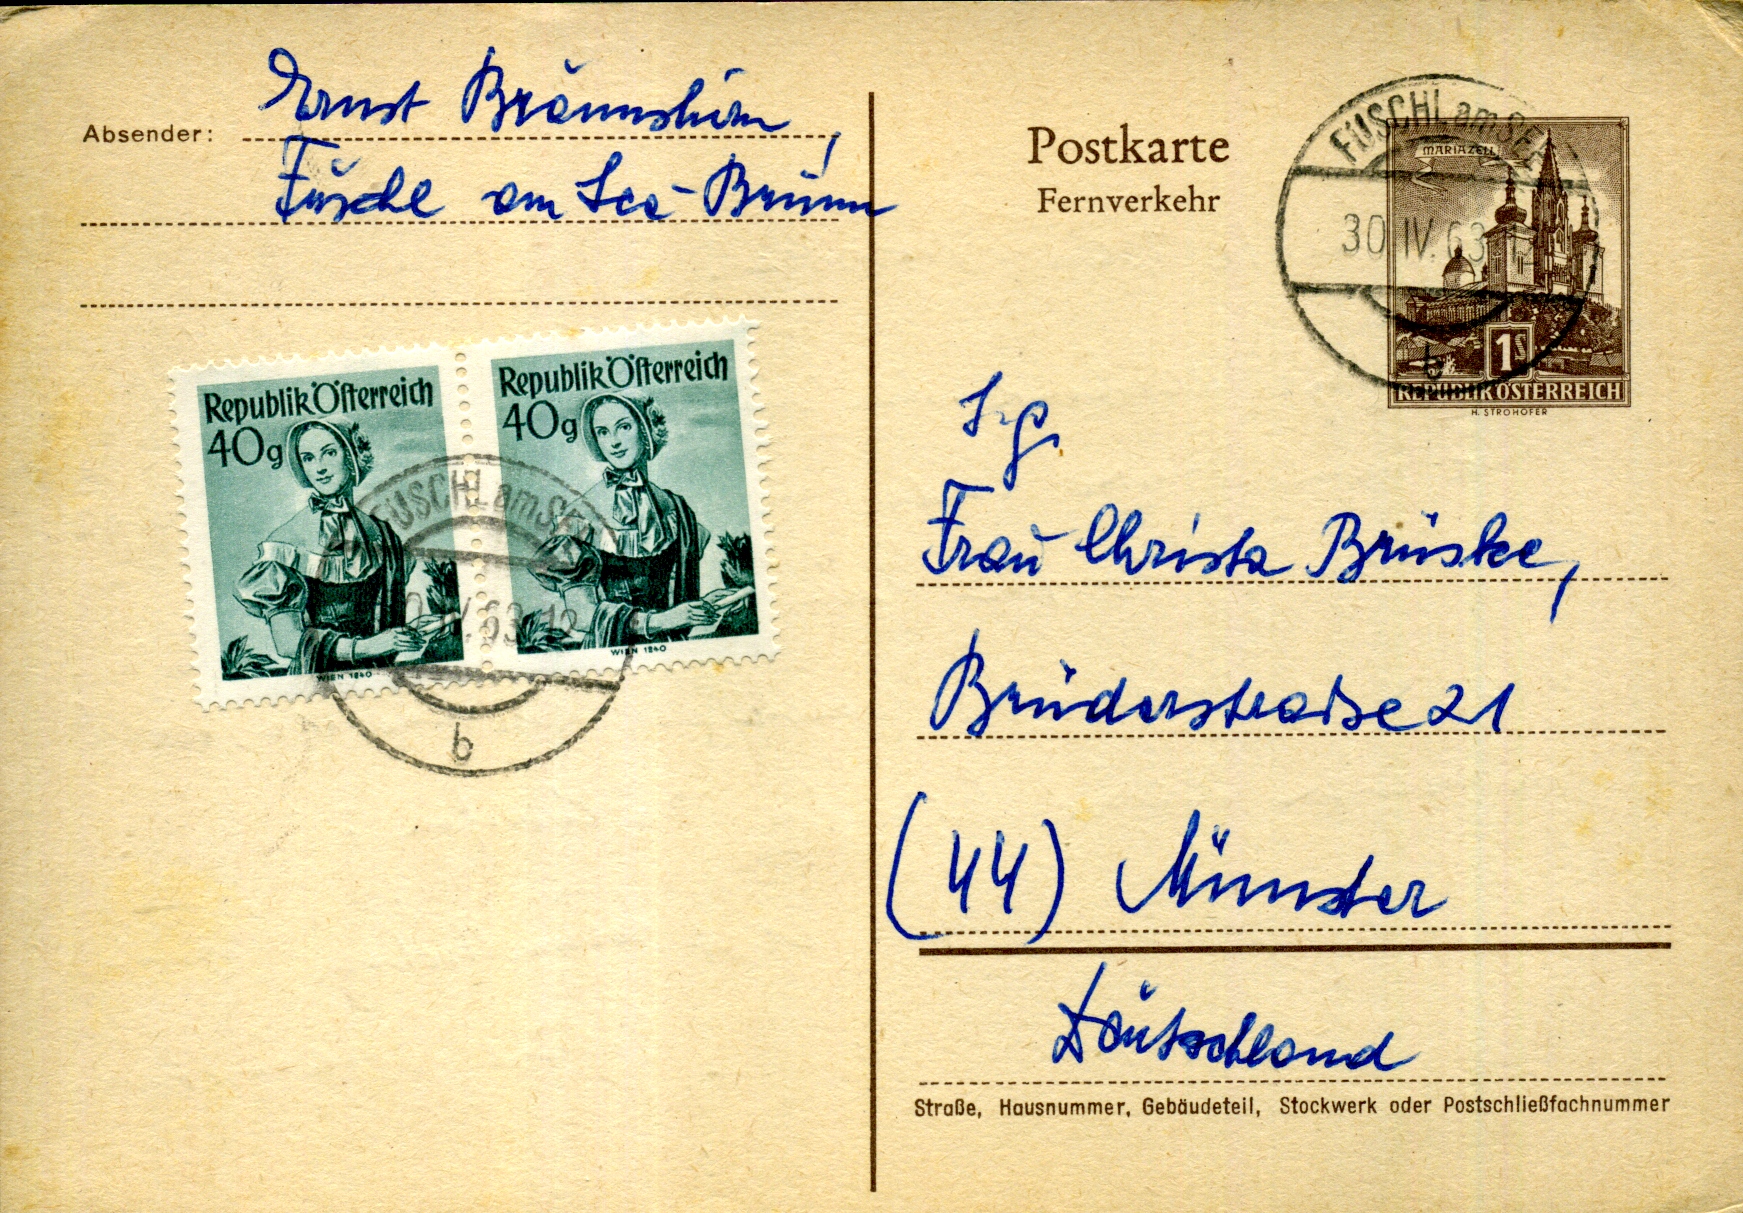 Absender:
Ernst
Fuschl am See - Brunn
Republik Österreich
40g
WIEN 1840
Republik Österreich
40g
WIEN 1840
FUSCHL am SEE
30.IV.63-12
b
Postkarte
Fernverkehr
FUSCHL am SEE
30.IV.63-12
b
MARIAZELL
1S
REPUBLIK ÖSTERREICH
H. STROHOFER
Frau Christa Brüske,
Brüderstraße 21
(44) Münster
Deutschland
Straße, Hausnummer, Gebäudeteil, Stockwerk oder Postschließfachnummer